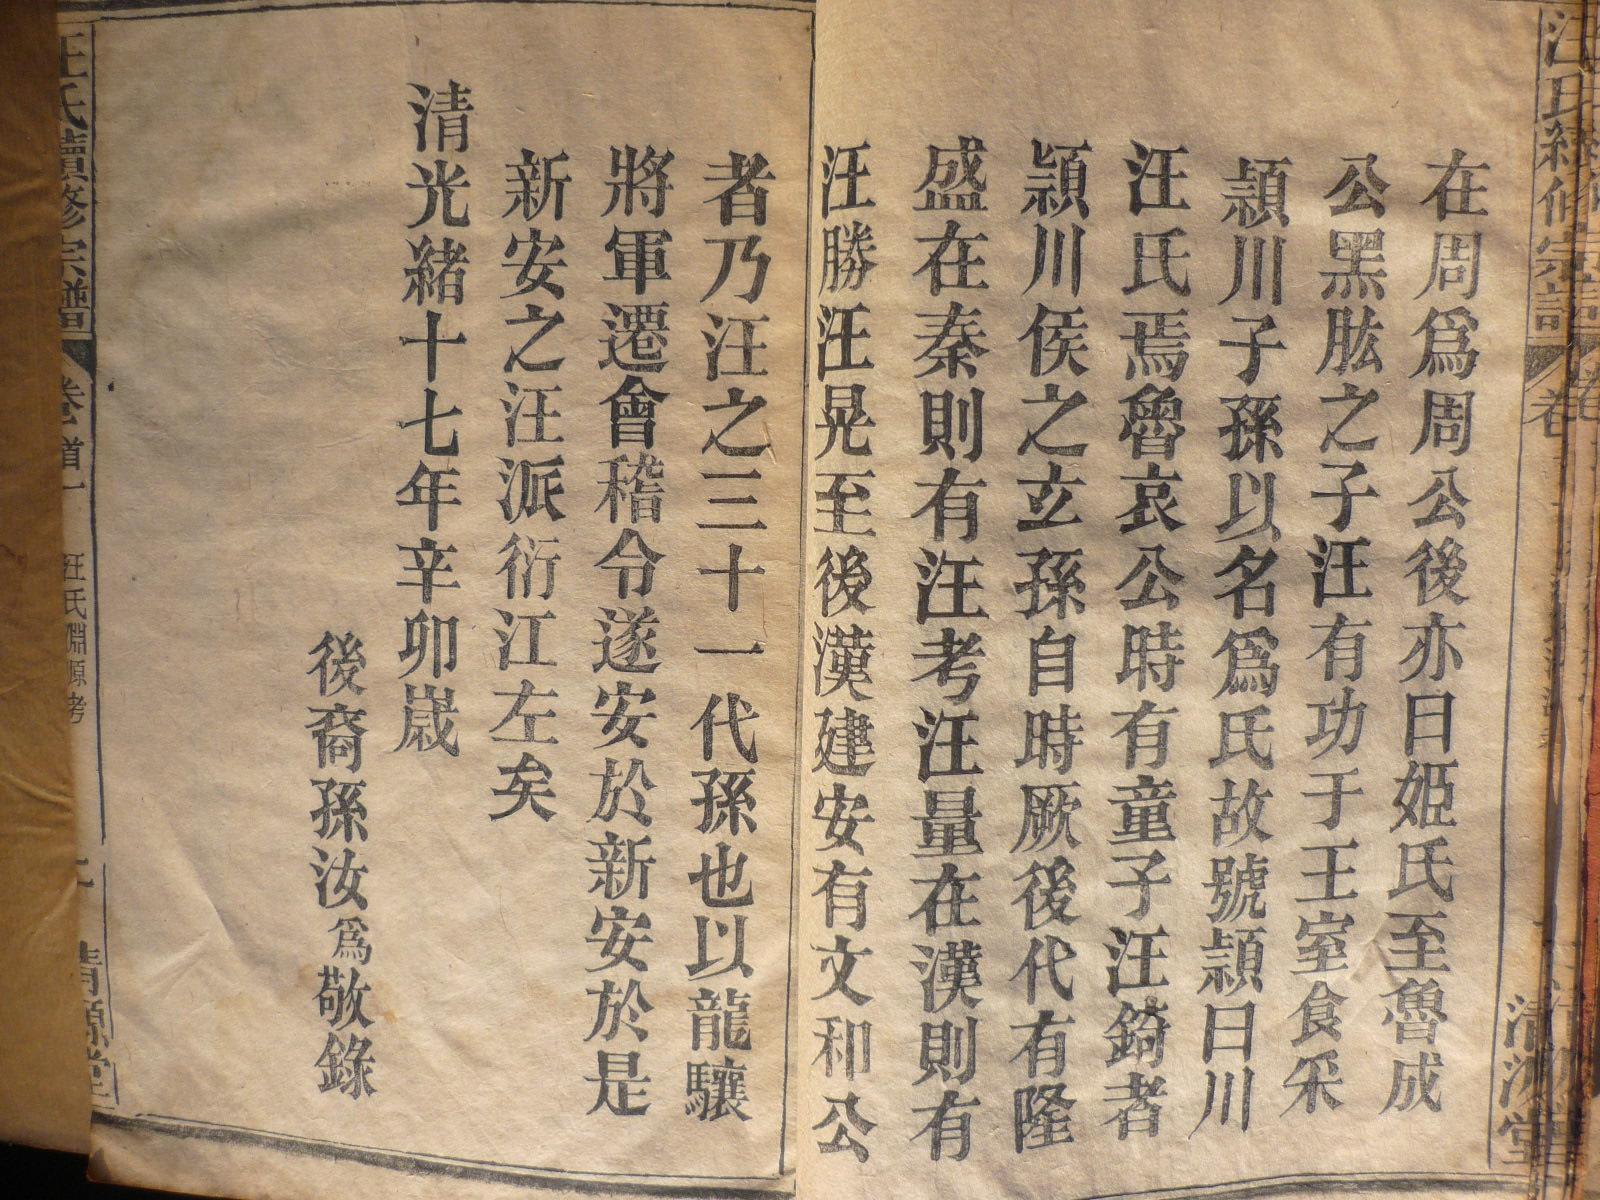 在周爲周公後亦曰姬氏至魯成
公黑肱之子汪有功于王室食采
頴川子孫以名爲氏故號頴曰川
汪氏焉魯哀公時有童子汪錡者
頴川侯之立孫自時厥後代有隆
盛在秦則有汪考汪量在漢則有
汪勝汪晃至後漢建安有文和公
者乃汪之三十一代孫也以龍驤
將軍遷會稽令遂安於新安於是
新安之汪派衍江左矣
清光緒十七年辛卯嵗
後裔孫汝爲敬錄
汪氏續修宗譜
卷首一
汪氏淵源考
清源堂